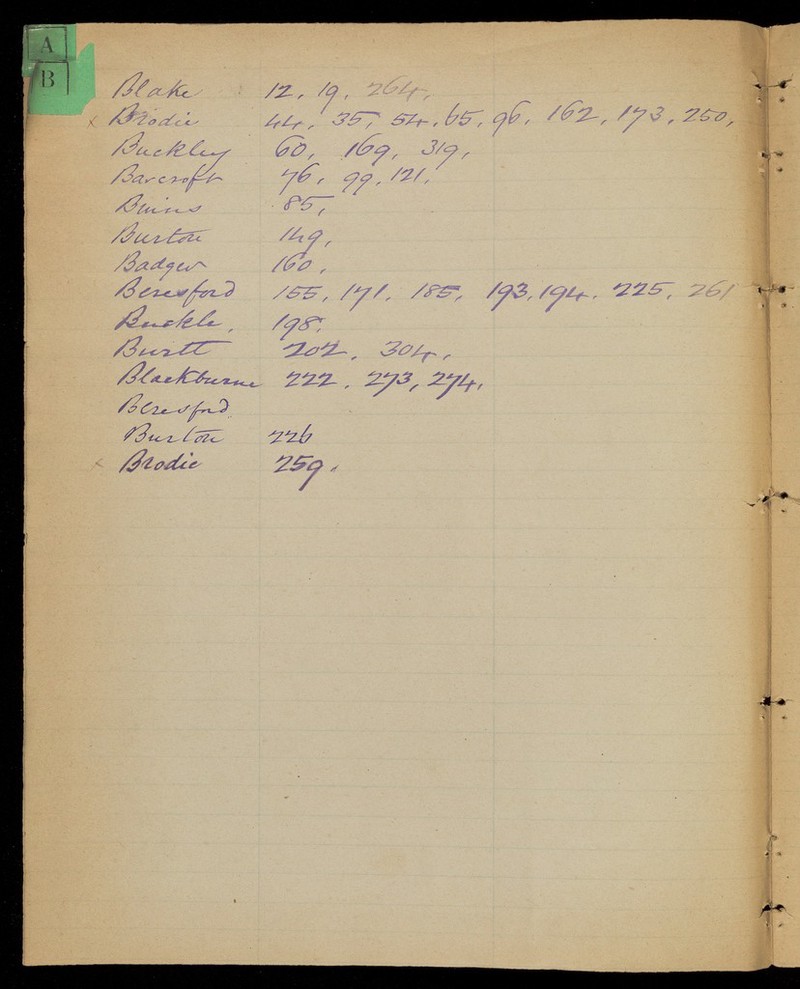 A
B
Blake 12, 19, 264,
x Brodie 44, 35, 54, 65, 96, 162, 173, 250,
Buckley 60, 169, 319,
Barcroft 76, 99, 121,
Binns 85,
Burton 149,
Badger 160,
Beresford 155, 171, 185, 193, 194, 225, 261
Buckle, 198,
Burtt 202, 304,
Blackburne 222, 273, 274,
Beresford
Burton 226
x Brodie 259,